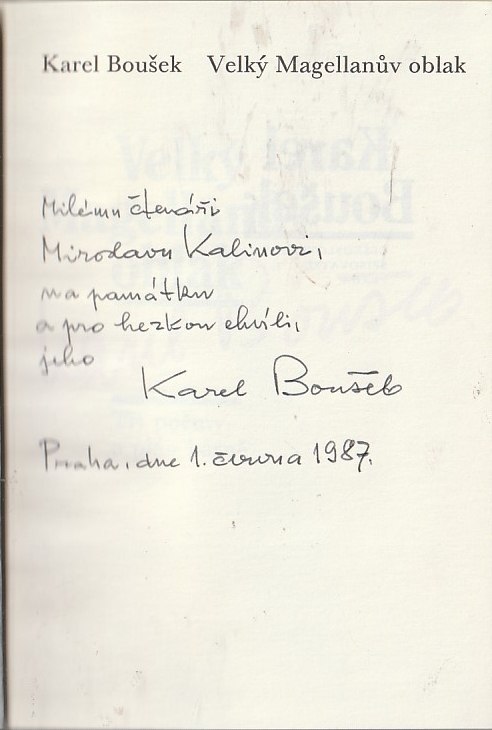 Karel Boušek Velký Magellanův oblak
Milému čtenáři
Miroslavu Kalinovi,
na památku
a pro hezkou chvíli,
jeho
Karel Boušek
Praha, dne 1. června 1987.